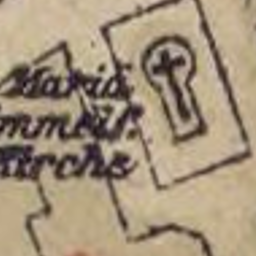 Mariä
immelf.
Kirche